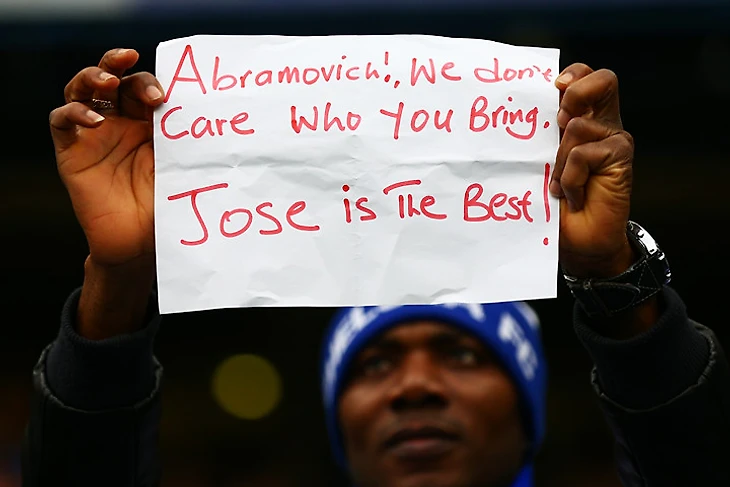 Abramovich!, We don't
Care Who You Bring.
Jose is The Best!
CHELSEA FC